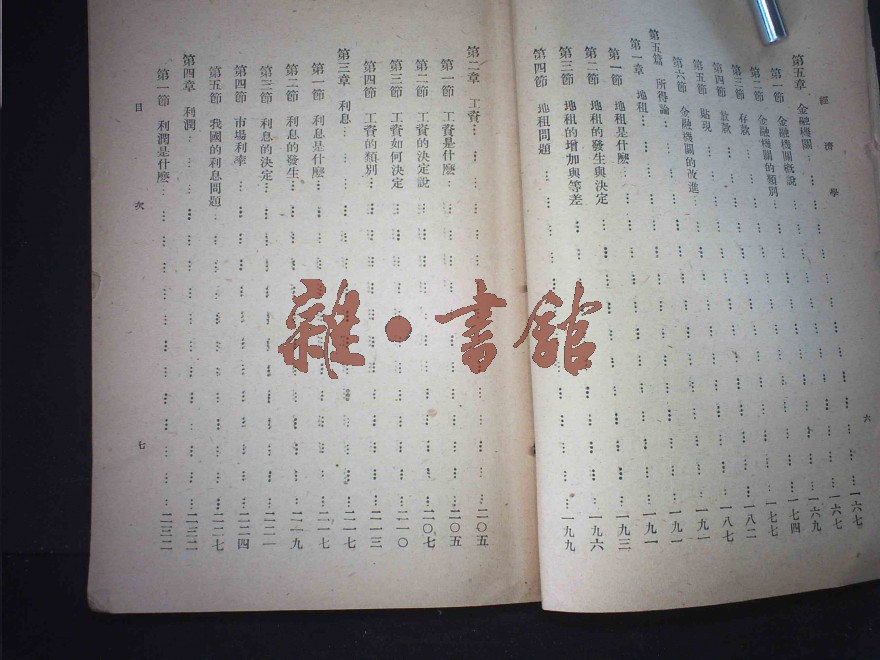 經濟學
六
第五章 金融機關……一六七
第一節 金融機關概說……一六七
第二節 金融機關的類別……一六九
第三節 存款……一七四
第四節 放款……一七七
第五節 貼現……一八二
第六節 金融機關的改進……一八七
第五篇 所得論……一九一
第一章 地租……一九一
第一節 地租是什麼……一九一
第二節 地租的發生與決定……一九三
第三節 地租的增加與等差……一九六
第四節 地租問題……一九九
第二章 工資……二〇五
第一節 工資是什麼……二〇五
第二節 工資的決定說……二〇七
第三節 工資如何決定……二一〇
第四節 工資的類別……二一三
第三章 利息……二一七
第一節 利息是什麼……二一七
第二節 利息的發生……二一九
第三節 利息的決定……二二一
第四節 市場利率……二二四
第五節 我國的利息問題……二二七
第四章 利潤……二三二
第一節 利潤是什麼……二三二
目次
七
雜·書館